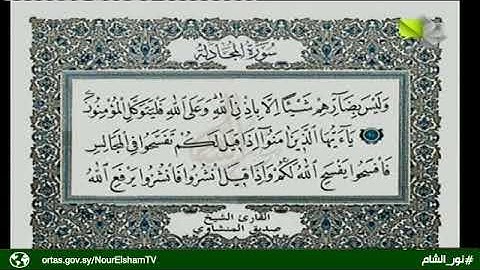 سُورَةُ المُجَادلَة
وَلَيْسَ بِضَآرِّهِمْ شَيْـًٔا إِلَّا بِإِذْنِ ٱللَّهِ وَعَلَى ٱللَّهِ فَلْيَتَوَكَّلِ ٱلْمُؤْمِنُونَ
يَٰٓأَيُّهَا ٱلَّذِينَ ءَامَنُوٓا۟ إِذَا قِيلَ لَكُمْ تَفَسَّحُوا۟ فِى ٱلْمَجَٰلِسِ
فَٱفْسَحُوا۟ يَفْسَحِ ٱللَّهُ لَكُمْ وَإِذَا قِيلَ ٱنشُزُوا۟ فَٱنشُزُوا۟ يَرْفَعِ ٱللَّهُ
القارئ الشيخ
صديق المنشاوي
ortas.gov.sy/NourElshamTV
#نور_الشام